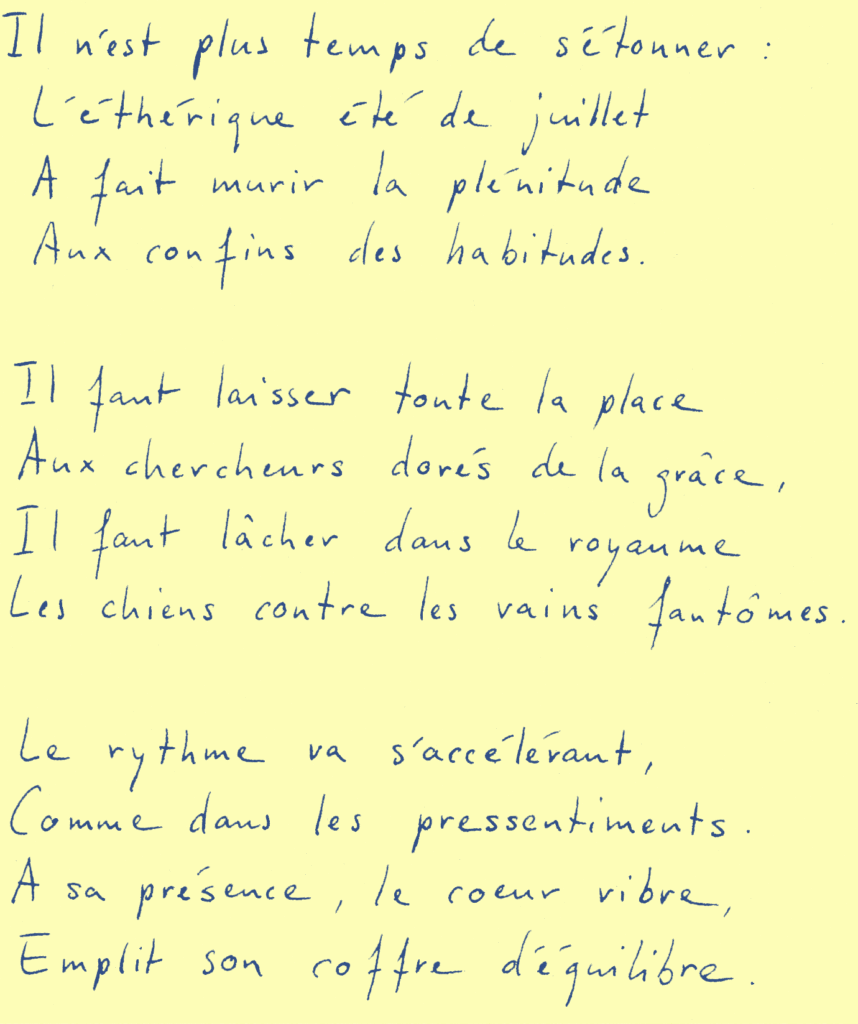 Il n'est plus temps de s'étonner :
L'éthérique été de juillet
A fait murir la plénitude
Aux confins des habitudes.
Il faut laisser toute la place
Aux chercheurs dorés de la grâce,
Il faut lâcher dans le royaume
Les chiens contre les vains fantômes.
Le rythme va s'accélérant,
Comme dans les pressentiments.
A sa présence, le coeur vibre,
Emplit son coffre d'équilibre.